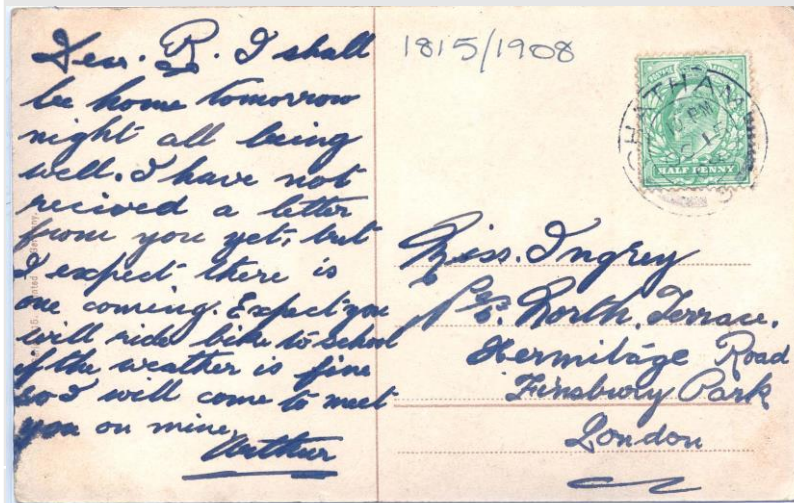 Dear. R. I shall
be home tomorrow
night all being
well. I have not
recieved a letter
from you yet, but
I expect there is
one coming. Expect you
will ride bike to school
if the weather is fine
so I will come to meet
you on mine.
Arthur
1815/1908
CHATHAM
PM
HALF PENNY
Miss. Ingrey
North. Terrace.
Hermitage Road
Finsbury Park
London